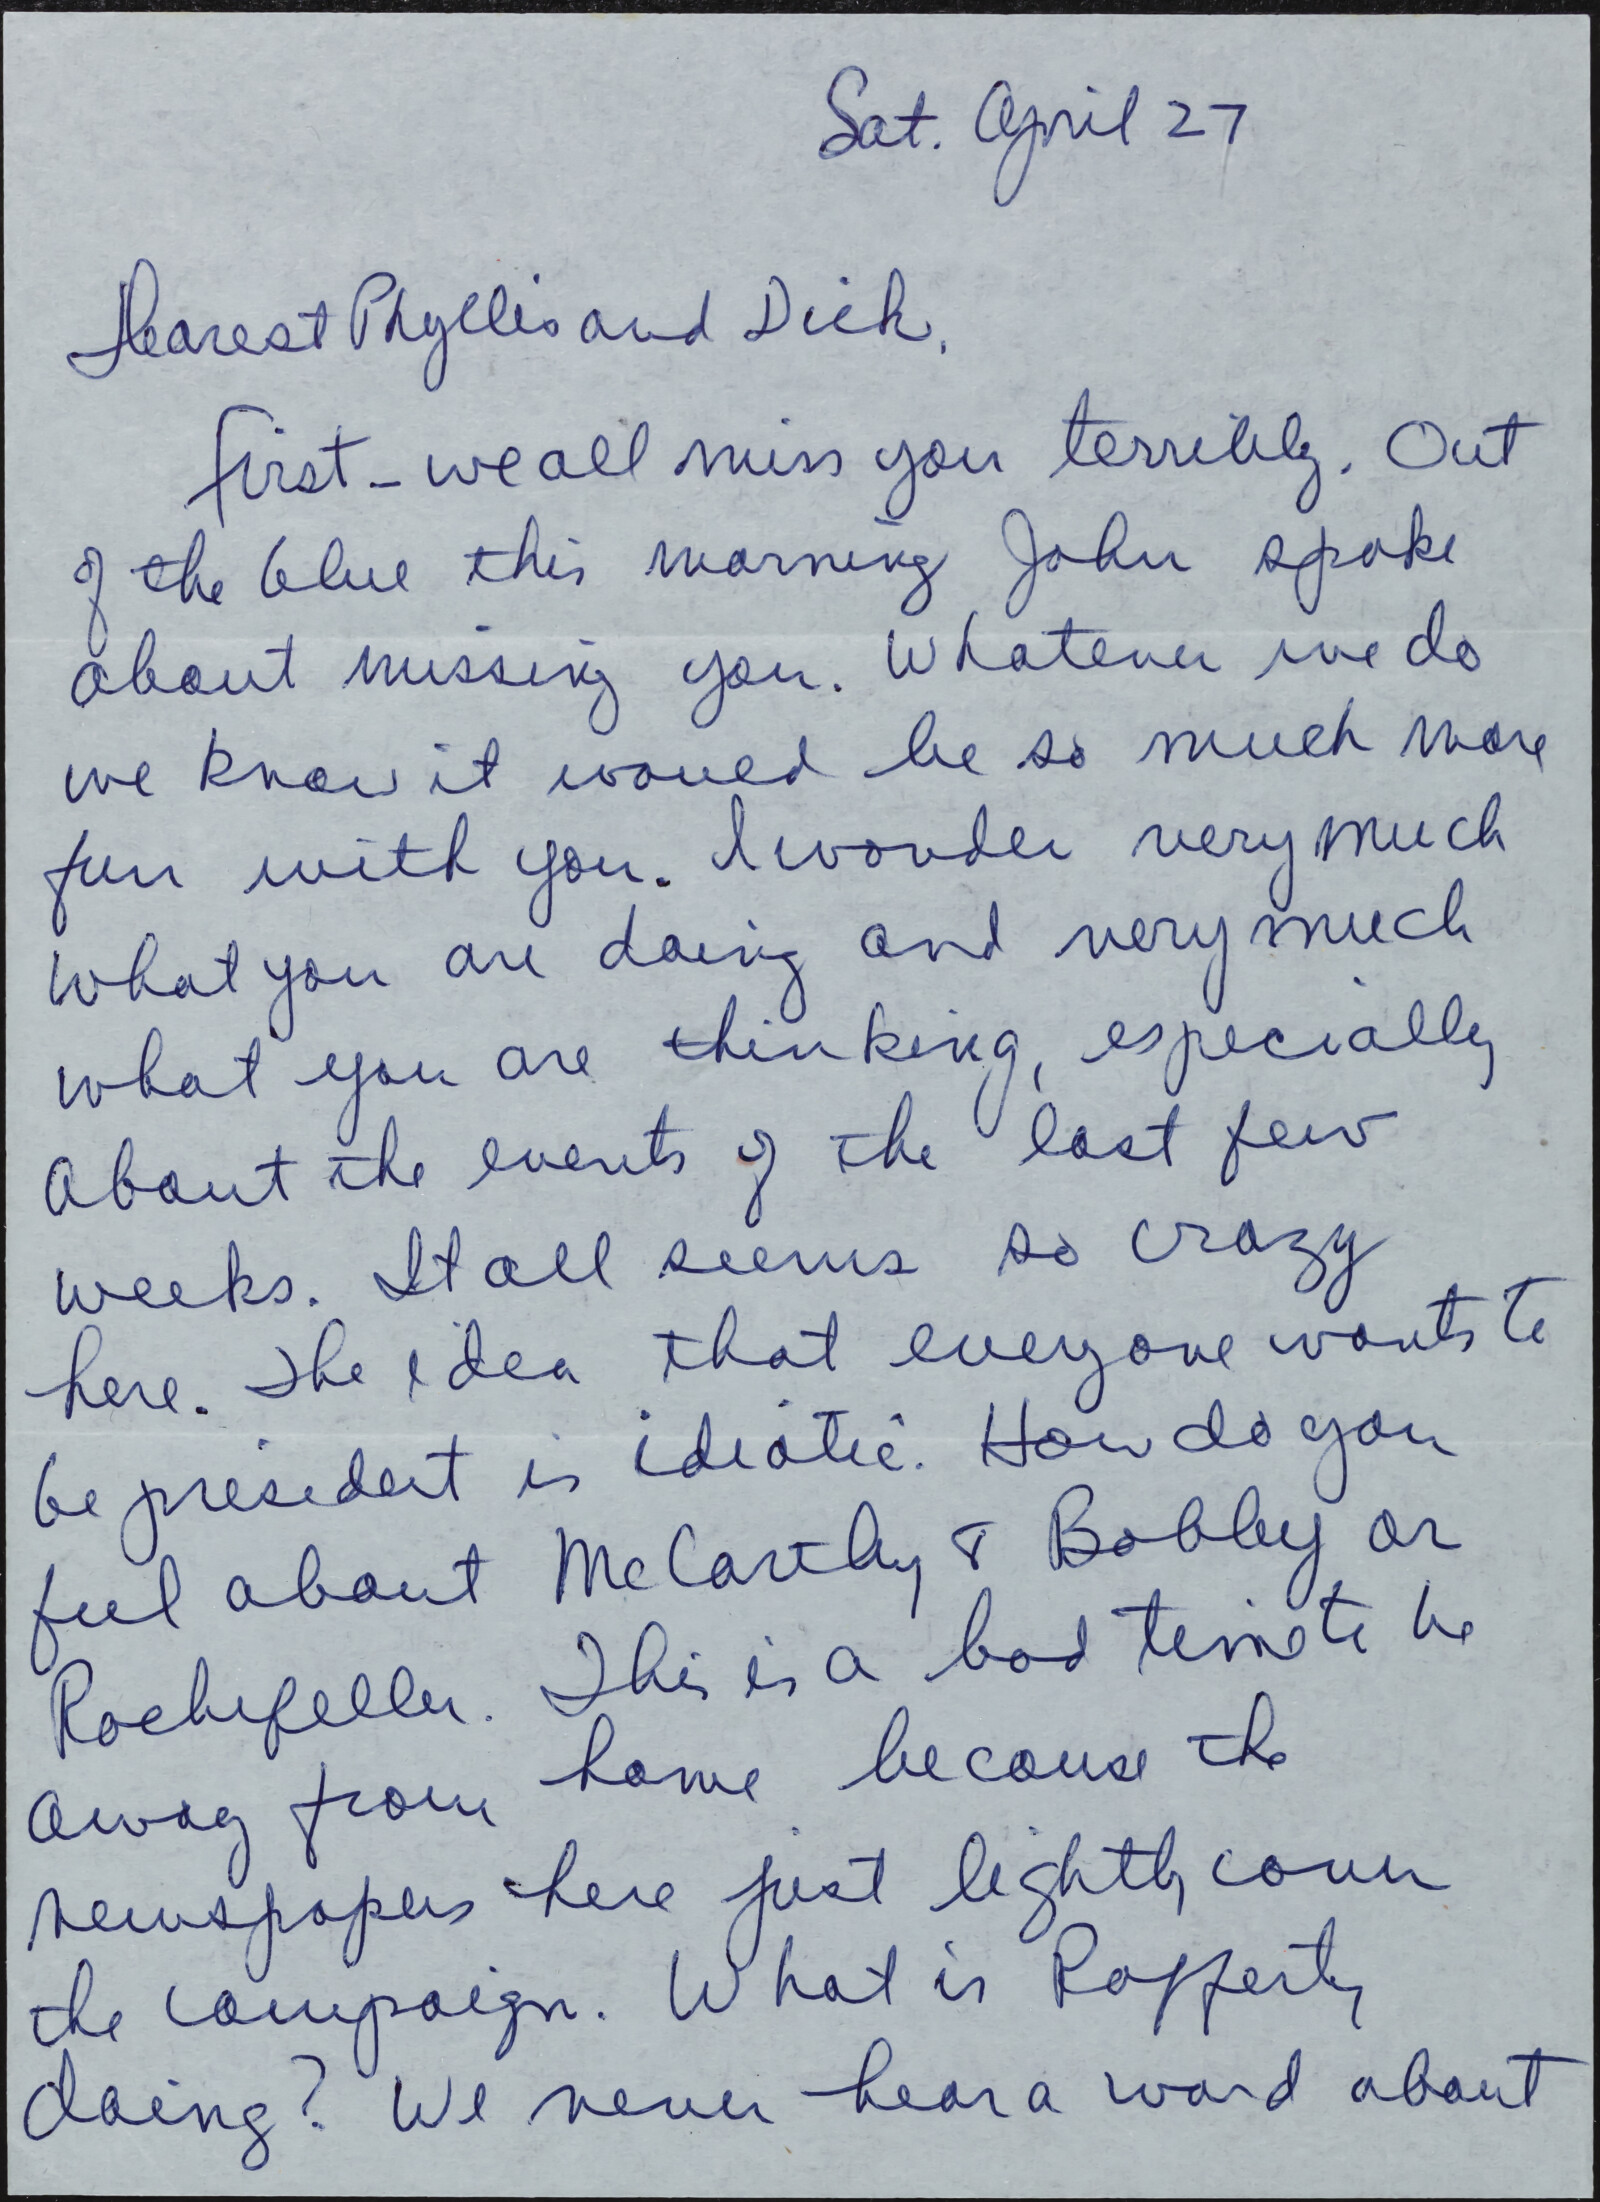 Sat. April 27
Dearest Phyllis and Dick,
First - we all miss you terribly. Out
of the blue this morning John spoke
about missing you. Whatever we do
we know it would be so much more
fun with you. I wonder very much
what you are doing and very much
what you are thinking, especially
about the events of the last few
weeks. It all seems so crazy
here. The idea that everyone wants to
be president is idiotic. How do you
feel about McCarthy & Bobby or
Rockefeller. This is a bad time to be
away from home because the
newspapers here just lightly cover
the campaign. What is Rafferty
doing? We never hear a word about